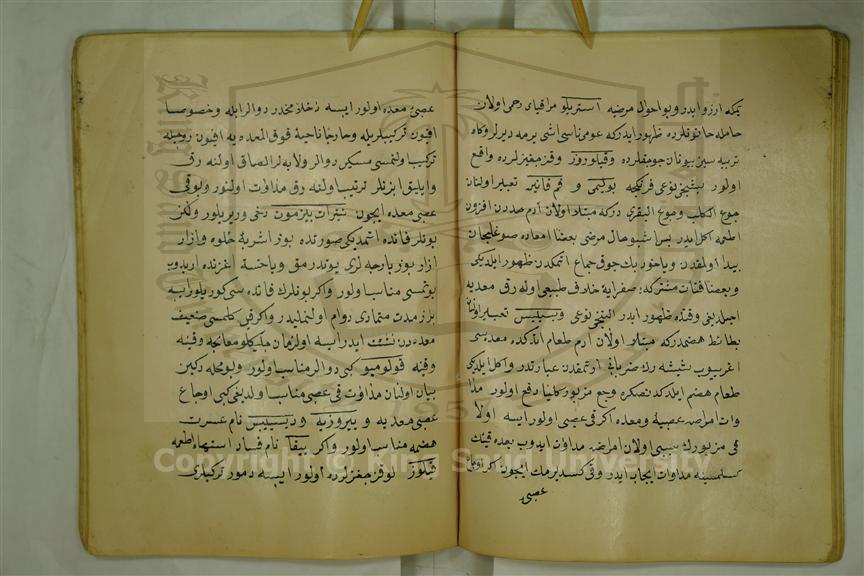 يمكه ارزو ايدر وبو احوال مرضيه استريلو مراقيا رحمى اولان
حامله خاتونلرده ظهور ايدركه عوم ناسى اشى يرمه ديرلر وكاه
سن يونان جومقلرده و قيلوروز وقزجغزلرده واقع
اولور بشنجى نوعى فرنكجه بوليمى و فم قانينه تعبير اولنان
جوع الكلب وجوع البقرى دركه مبتلا اولان آدم حددن افزون
اطعمه اكل ايدر بس اشبو حال مرضى بعضا امعاده صوغلجان
پيدا اولمقدن وياخود پك چوق جماع اتمكدن ظهور ايلديكى
وبعضا قنات مشتركه صفرايه خلاف طبيعى اوله رق معديه
اچلديغى وقتده ظهور ايدر التنجى نوعى وسپپسى تعبير اولنان
بطائط هضمدركه مبتلا اولان آدم طعام ايدكده معده سى
اغريوب نسته رك ضربانى ارتمقدن عبارتدر واكل ايلديكى
طعام هضم ايلدكدنصكره وجع مزبور كليا دفع اولور مدا
وات امراض عصبية ومعده اكر فى عصى اولور ايسه اولا
فى مزبورك سببى اولان امراضه مداوات ايدوب بعده قينك
كسلمسينه مداوات ايجاب ايدر وقى كسديرمك ايچون اكر اولان
عصبى
عصبئ معده اولور ايسه داخلا مخدر دوالر ايله وخصوصا
افيون تركيبلريله وخارجا ناحية فوق المعده يه افيون روحيله
تركيب اولنمش مسكن دوالر ولابه لر الصاق اولنه رق
وايليق ابزنلر ترتيب اولنه رق مداوات اولنور ولو فى
عصبى معده ايچون نيترات بيزموت دخى ويريلور ولكن
بونلر فائده اتمديكى صورتده بوز اشربهٔ حلوه وازار
ازار بوز پارچه لرى يوتدرمق وياخسه اغزنده اريدوب
يوتمسى مناسب اولور واكر بونلرك فائده سى كوريلور ايسه
بر از مدت متمادى دوام اولنمليدر واكر فى كلمسى ضعيف
معده دن نشئت ايدر ايسه اولزمان چليكلو معالجه وقينه
وقينه قولومبو كبى دوالر مناسب اولور وبو محلده كچن
بيان اولنان مداوات فى عصبى مناسب اولديغى كبى اوجاع
عصبى معديه و پيروزيه و ديسپپسى نام عسرت
هضمه مناسب اولور واكر پيقا نام فساد اشتهاء اطعمه
قيلوز لو قزجغزلرده اولور ايسه دمور تركيبلرى
Copyright © King Saud University
1957